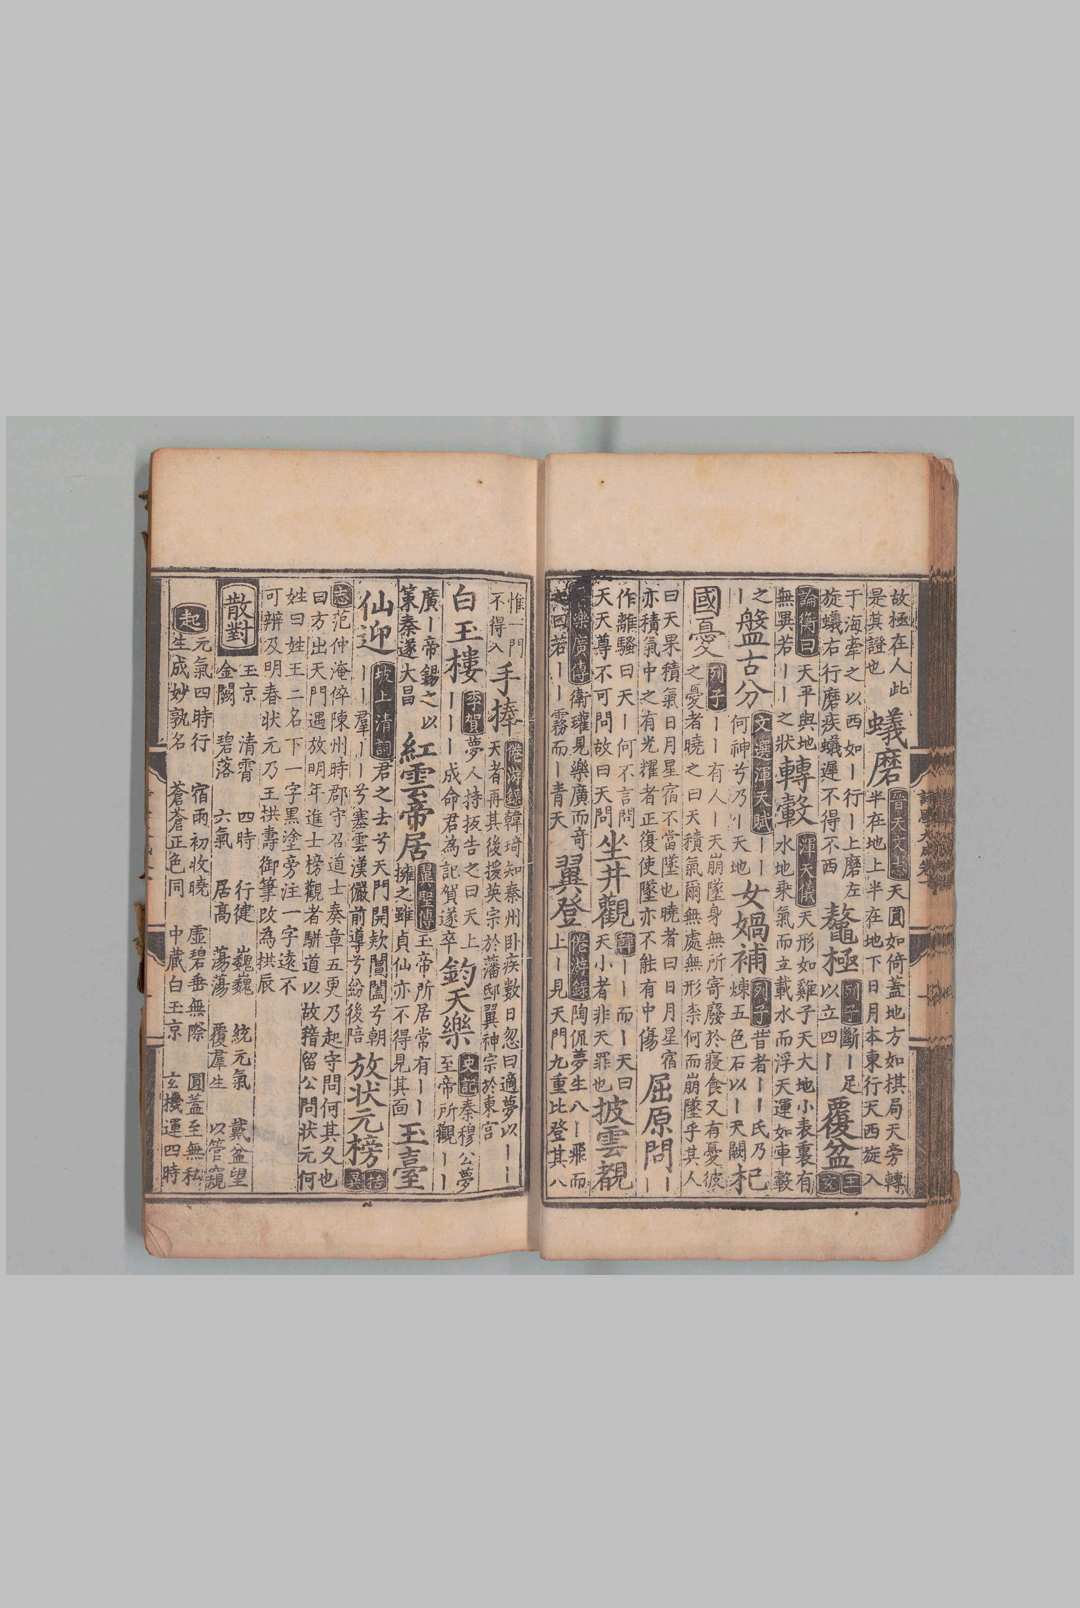 故極在人此
是其證也
蟻磨
晉天文志天圓如倚蓋地方如棋局天旁轉
半在地上半在地下日月本東行天西旋入
于海牽之以西如丨行丨上磨左
旋蟻右行磨疾蟻遲不得不西
鼇極
列子斷丨足
以立四丨
覆盆
王充
論衡曰天平與地
無異若丨丨之狀
轉轂
渾天儀天形如雞子天大地小表裏有
水地乘氣而立載水而浮天運如車轂
之丨
盤古分
文選渾天賦丨丨
何神兮乃丨天地
女媧補
列子昔者丨丨氏乃
煉五色石以丨天闕
杞
國憂
列子丨丨有人丨天崩墜身無所寄廢於寢食又有憂彼
之憂者曉之曰天積氣爾無處無形柰何而崩墜乎其人
曰天果積氣日月星宿不當墜也曉者曰日月星宿
亦積氣中之有光耀者正復使墜亦不能有中傷
屈原問
丨丨
作離騷曰天丨何不言問
天天尊不可問故曰天問
坐井觀
韓丨丨而丨天曰
天小者非天罪也
披雲覩
樂廣傳衛瓘見樂廣而奇
之曰若丨霧而丨青天
翼登
倦游錄陶侃夢生八丨飛而
上丨見天門九重比登其八
惟一門
不得入
手捧
倦游錄韓琦知秦州卧疾數日忽曰適夢以丨丨
天者再其後援英宗於藩邸翼神宗於東宮
白玉樓
李賀夢人持板告之曰天上
丨丨丨成命君為記賀遂卒
鈞天樂
史記秦穆公夢
至帝所觀丨丨
廣丨帝錫之以
策秦遂大昌
紅雲帝居
翼聖傳玉帝所居常有丨丨
擁之雖貞仙亦不得見其面
玉臺
仙迎
坡上清詞君之去兮天門開欵閶闔兮朝
丨丨羣丨丨兮塞雲漢儼前導兮紛後陪
放状元榜
括異
志范仲淹倅陳州時郡守召道士奏章五更乃起守問何其久也
曰方出天門遇放明年進士榜觀者駢道以故稽留公問狀元何
姓曰姓王二名下一字黑塗旁注一字遠不
可辨及明春狀元乃王拱壽御筆改為拱辰
散對
玉京 清霄 四時 行健 巍巍 統元氣 戴盆望
金闕 碧落 六氣 居高 蕩蕩 覆羣生 以管窺
起
元氣四時行 宿雨初收曉 虛碧垂無際 圓蓋至無私
生成妙孰名 蒼蒼正色同 中藏白玉京 玄機運四時